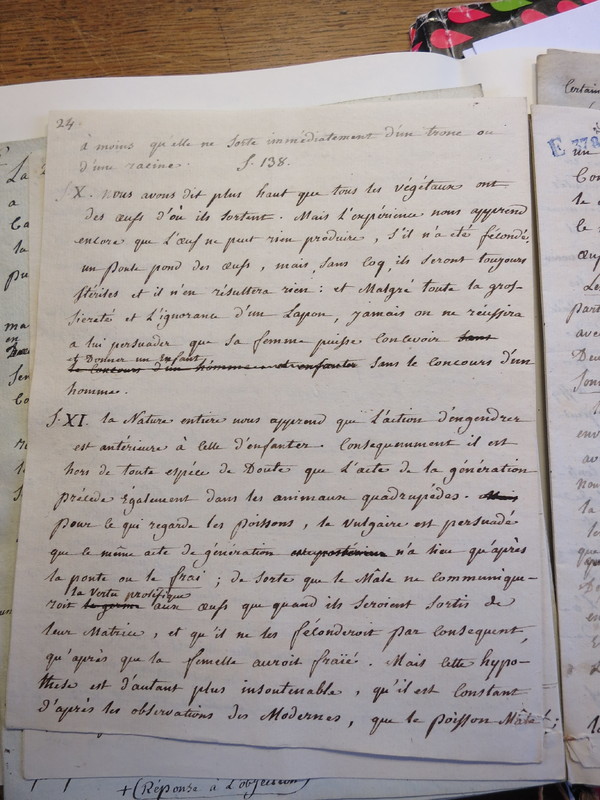 24.
à moins qu'elle ne sorte immédiatement d'un tronc ou
d'une racine. §. 138.
§ X. Nous avons dit plus haut que tous les végétaux ont
des œufs d'où ils sortent. Mais l'expérience nous apprend
encore que l'œuf ne peut rien produire, s'il n'a été fécondé.
un Poule pond des œufs, mais, sans coq, ils seront toujours
stériles et il n'en résultera rien : et Malgré toute la gros-
siereté et l'ignorance d'un Lapon, jamais on ne réussira
a lui persuader que sa femme puisse concevoir sans
et Donner un Enfant
le concours d'un homme enfanter sans le concours d'un
homme.
§. XI. la Nature entiere nous apprend que l'action d'engendrer
est antérieure à celle d'enfanter. Consequemment il est
hors de toute espéce de Doute que l'acte de la génération
précède également dans les animaux quadrupèdes. Mais
pour ce qui regarde les poissons, le vulgaire est persuadé
que le même acte de génération n'a lieu qu'après
la ponte ou le frai ; de sorte que le Mâle ne communique-
la Vertu prolifique
roit le germe aux œufs que quand ils seroient sortis de
leur Matrice, et qu'il ne les féconderoit par consequent,
qu'après que la femelle auroit fraïé. Mais cette hypo-
these est d'autant plus insoutenable, qu'il est constant
d'après les observations des Modernes, que le poisson Mâle
+ (Réponse à l'objection)
Certain
E